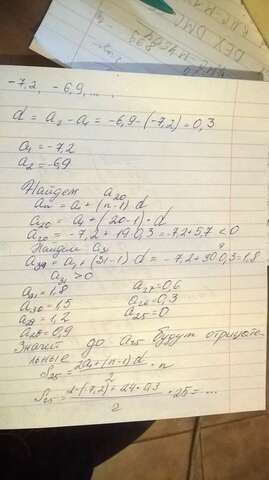 -7,2, -6,9, ...
d = a₂ - a₁ = -6,9 - (-7,2) = 0,3
a₁ = -7,2
a₂ = -6,9
Найдем a₂₀
aₙ = a₁ + (n-1) d
a₂₀ = a₁ + (20-1) · d
a₂₀ = -7,2 + 19·0,3 = -7,2 + 5,7 < 0
Найдем a₃₁
a₃₁ = a₁ + (31-1) d = -7,2 + 30·0,3 = 1,8
a₃₁ > 0
a₃₁ = 1,8 a₂₇ = 0,6
a₃₀ = 1,5 a₂₆ = 0,3
a₂₉ = 1,2 a₂₅ = 0
a₂₈ = 0,9
Значит до a₂₅ будут отрицате
льные
S₂₅ = 2a₁ + (n-1) d / 2 · n
S₂₅ = 2·(-7,2) + 24·0,3 / 2 · 25 = ...